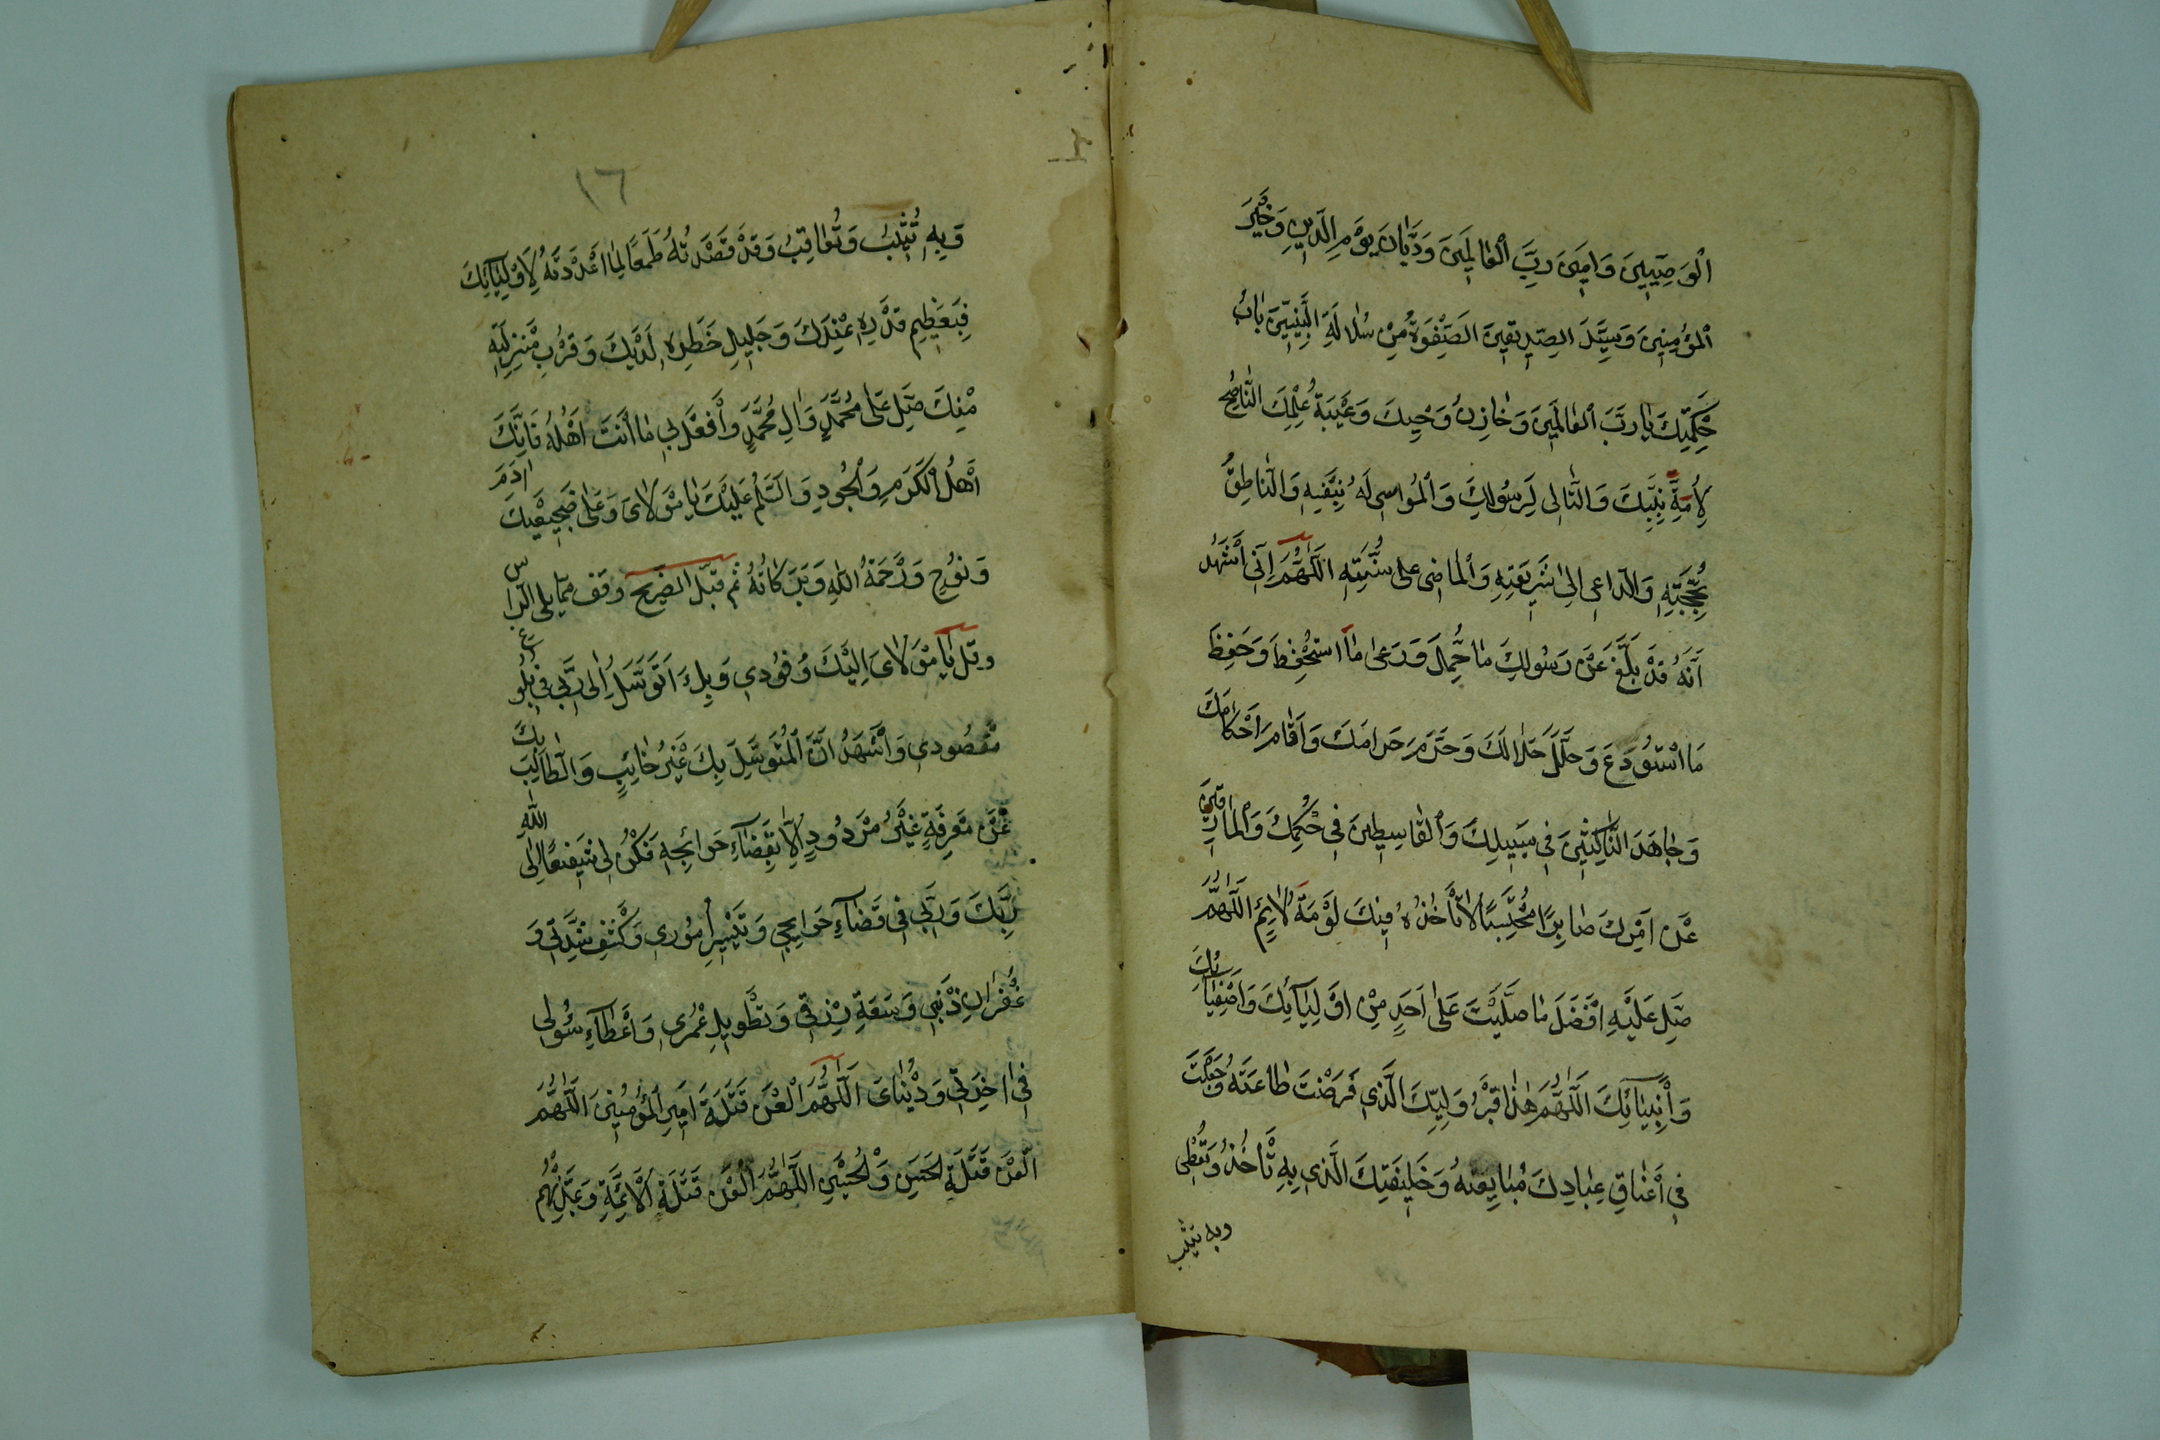 الْوَصِيّينَ وَاَمينَ رَبِّ الْعٰالَمينَ وَدَيّٰانَ يَوْمِ الدّينِ وَخَيْرَ
الْمُؤْمِنينَ وَسَيِّدَ الصِّدّيقينَ الصَّفْوَةُ مِنْ سُلٰالَةِ النَّبِيّينَ بٰابُ
حِكْمَتِكَ يٰا رَبَّ الْعٰالَمينَ وَخٰازِنُ وَحْيِكَ وَعَيْبَةُ عِلْمِكَ النّٰاصِحُ
لِاُمَّةِ نَبِيِّكَ وَالتّٰالى لِرَسُولِكَ وَالْمُوٰاسى لَهُ بِنَفْسِهِ وَالنّٰاطِقُ
بِحُجَّتِهِ وَالدّاعى اِلىٰ شَرِيعَتِهِ وَالْمٰاضى على سُنَّتِهِ اَللّٰهُمَّ اِنّى اَشْهَدُ
اَنَّهُ قَدْ بَلَّغَ عَنْ رَسُولِكَ مٰا حُمِّلَ وَرَعىٰ مٰا اسْتُحْفِظَ وَحَفِظَ
مَا اسْتُودِعَ وَحَلَّلَ حَلالَكَ وَحَرَّمَ حَرامَكَ وَاَقٰامَ اَحْكٰامَكَ
وَجٰاهَدَ النّٰاكِثينَ فى سَبيلِكَ وَالْقٰاسِطينَ فى حُكْمِكَ وَالْمٰارِقينَ
عَنْ اَمْرِكَ صٰابِرًا مُحْتَسِبًا لاٰ تَأْخُذُهُ فيكَ لَوْمَةَ لاٰئِمٍ اَللّٰهُمَّ
صَلِّ عَلَيْهِ اَفْضَلَ مٰا صَلَّيْتَ عَلىٰ اَحَدٍ مِنْ اَوْلِيٰائِكَ وَاَصْفِيٰائِكَ
وَاَنْبِيٰائِكَ اَللّٰهُمَّ هٰذٰا قَبْرُ وَلِيِّكَ الَّذى فَرَضْتَ طٰاعَتَهُ وَجَعَلْتَ
فى اَعْنٰاقِ عِبٰادِكَ مُبٰايَعَتَهُ وَخَليفَتِكَ الَّذى بِهِ تَأْخُذُ وَتُعْطى
وبه تثيب
١٦
وَبِهِ تُثيبُ وَتُعٰاقِبُ وَقَدْ قَصَدْتُهُ طَمَعًا لِمٰا اَعْدَدْتَهُ لِاَوْلِيٰائِكَ
فَبِعَظيمِ قَدْرِهِ عِنْدَكَ وَجَليلِ خَطَرِهِ لَدَيْكَ وَقُرْبِ مَنْزِلَتِهِ
مِنْكَ صَلِّ عَلىٰ مُحَمَّدٍ وَاٰلِ مُحَمَّدٍ وَافْعَلْ بى مٰا اَنْتَ اَهْلُهُ فَاِنَّكَ
اَهْلُ الْكَرَمِ وَالْجُودِ وَالسَّلٰمُ عَلَيْكَ يٰا مَوْلاٰىَ وَعَلىٰ ضَجيعَيْكَ اٰدَمَ
وَنُوحٍ وَرَحْمَةُ اللهِ وَبَرَكٰاتُهُ ثم قبّل الضّريح وقف ممّا يلى الرّاس
وقل يٰا مَوْلاٰىَ اِلَيْكَ وُفُودى وَبِكَ اَتَوَسَّلُ اِلىٰ رَبّى فى بُلُوغِ
مَقْصُودى وَاَشْهَدُ اَنَّ الْمُتَوَسِّلَ بِكَ غَيْرُ خٰائِبٍ وَالطّٰالِبَ بِكَ
عَنْ مَعْرِفَةٍ غَيْرُ مَرْدُودٍ اِلاّٰ بِقَضٰاءِ حَوائِجِهِ فَكُنْ لى شَفيعًا اِلَى اللهِ
رَبِّكَ وَرَبّى فى قَضٰاءِ حَوٰائِجى وَتَيْسيرِ اُمُورى وَكَشْفِ شِدَّتى وَ
غُفْرٰانِ ذَنْبى وَسَعَةِ رِزْقى وَتَطْويلِ عُمْرى وَاِعْطٰاءِ سُؤْلى
فى اٰخِرَتى وَدُنْيٰاىَ اَللّٰهُمَّ الْعَنْ قَتَلَةَ اَميرِ الْمُؤْمِنينَ اَللّٰهُمَّ
الْعَنْ قَتَلَةَ الْحَسَنِ وَالْحُسَيْنِ اَللّٰهُمَّ الْعَنْ قَتَلَةَ الْاَئِمَّةِ وَعَذِّبْهُمْ